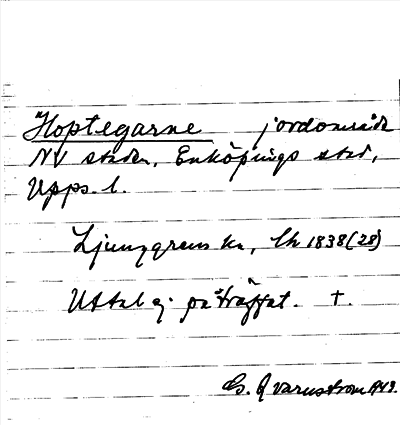 Hoptegarne jordområde
NV staden, Enköpings stad,
Upps. l.
Ljunggrens ka, LSA 1838 (28)
Uttal ej påträffat. †.
G. Qvarnström 1943.